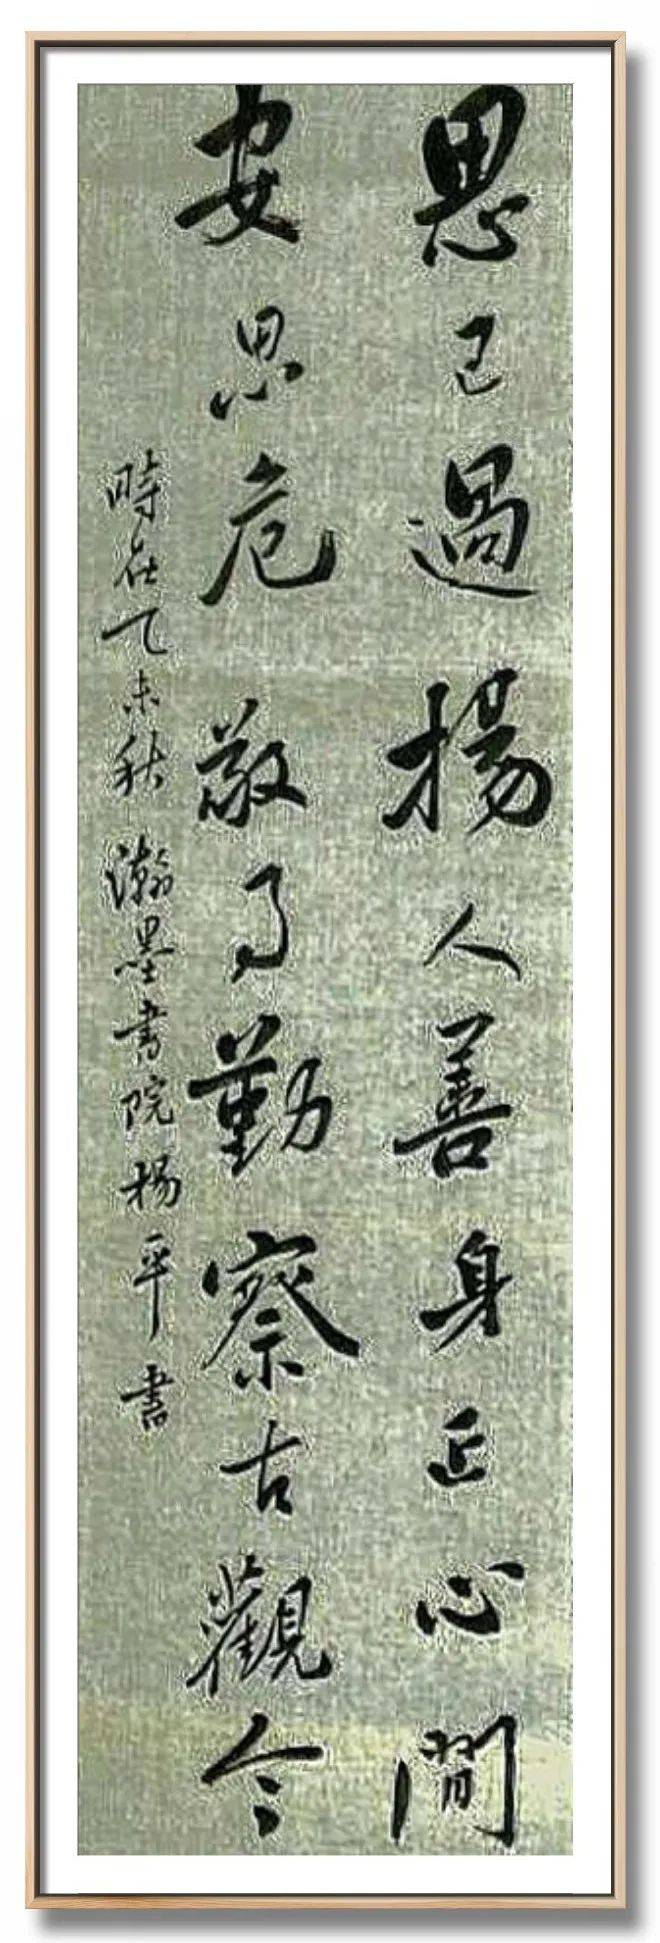 思己過揚人善身正心閒
安思危敬事勤察古觀今
時在乙未秋瀚墨書院楊平書